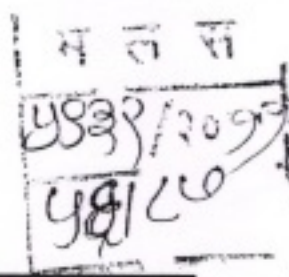 म ल स
५९३९/२०११
५६/८७